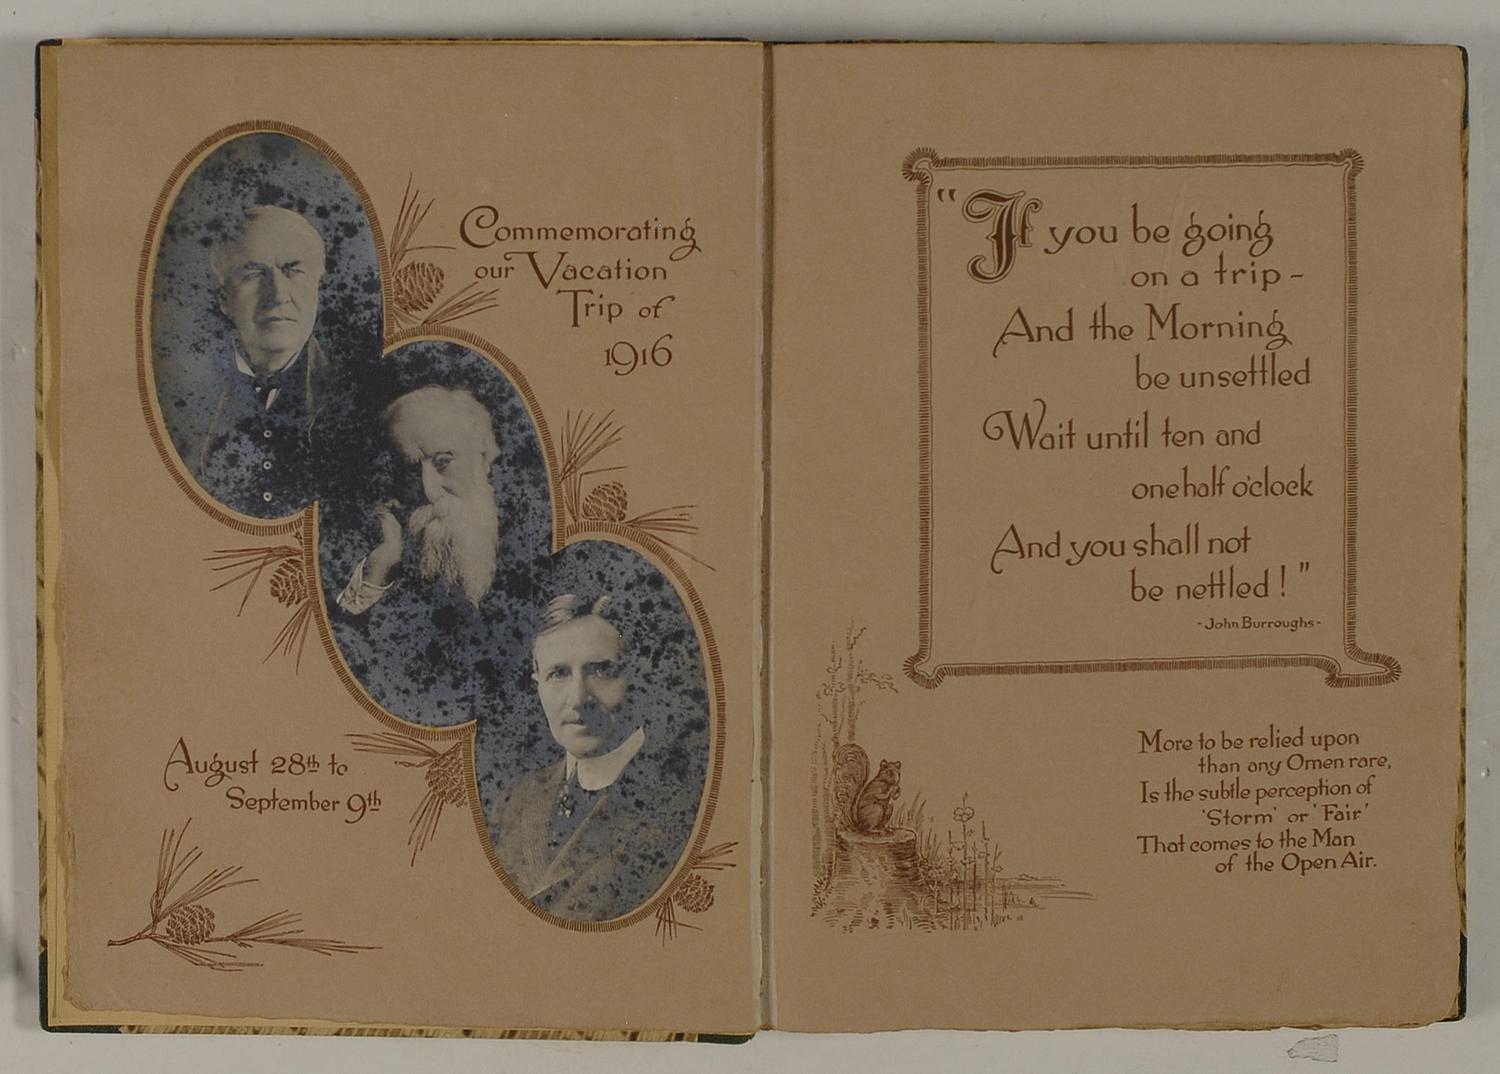 Commemorating
our Vacation
Trip of
1916
August 28th to
September 9th
"If you be going
on a trip-
And the Morning
be unsettled
Wait until ten and
one half o'clock
And you shall not
be nettled!"
- John Burroughs -
More to be relied upon
than any Omen rare,
Is the subtle perception of
'Storm' or 'Fair'
That comes to the Man
of the Open Air.